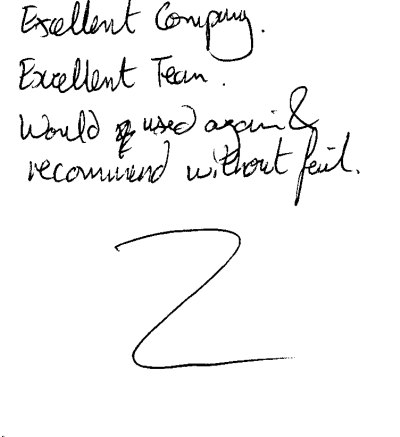 Excellent Company.
Excellent Team.
Would used again &
recommend without fail.